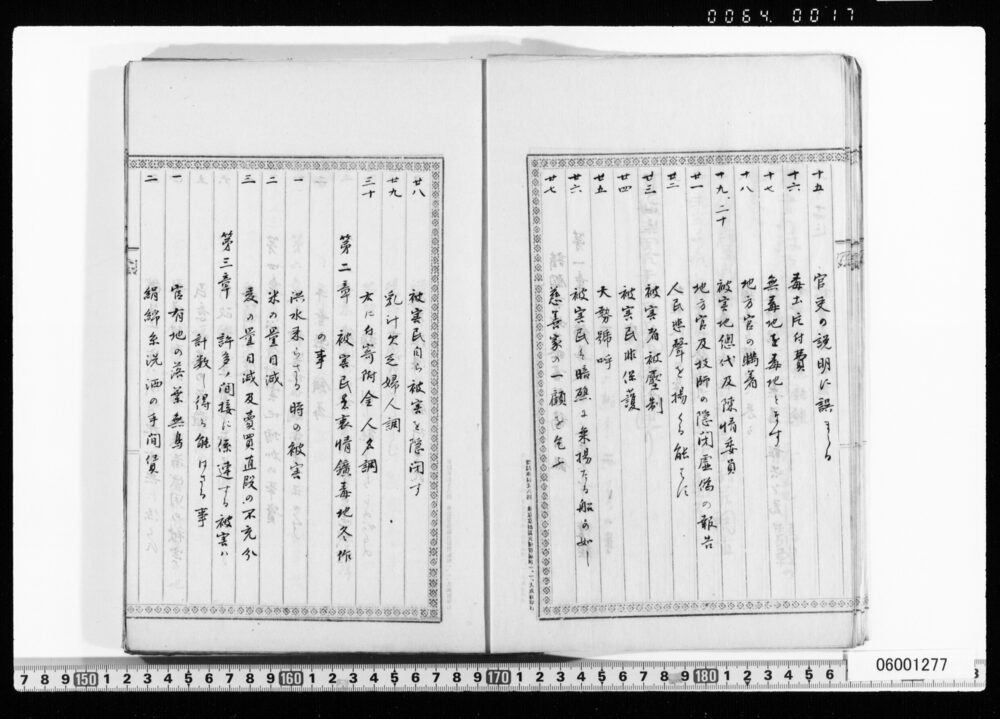 0064.0017
十五 官吏の説明に誤まる
十六 毒土片付費
十七 無毒地を毒地とす
十八 地方官の瞞着
十九、二十 被害地總代及陳情委員
廿一 地方官及技師の隠閉虚偽の報告
廿二 人民悲聲を揚くる能はす
廿三 被害者被壓制
廿四 被害民非保護
廿五 大勢號呼
廿六 被害民は暗礁に乗揚たる船の如し
廿七 慈善家の一顧を乞ふ
廿八 被害民自ら被害を隠閉す
廿九 乳汁欠乏婦人調
三十 寄附金人名調
第二章 被害民哀情鑛毒地冬作の事
一 洪水来らさる時の被害
二 米の量目減
三 麦の量目減及賣買直段の不充分
第三章 許多ノ間接に係連する被害ハ計数し得る能はさる事
一 官有地の落葉無為
二 絹綿糸洗洒の手間賃
7 8 9 150 1 2 3 4 5 6 7 8 9 160 1 2 3 4 5 6 7 8 9 170 1 2 3 4 5 6 7 8 9 180 1 2 3 4 5 6
06001277